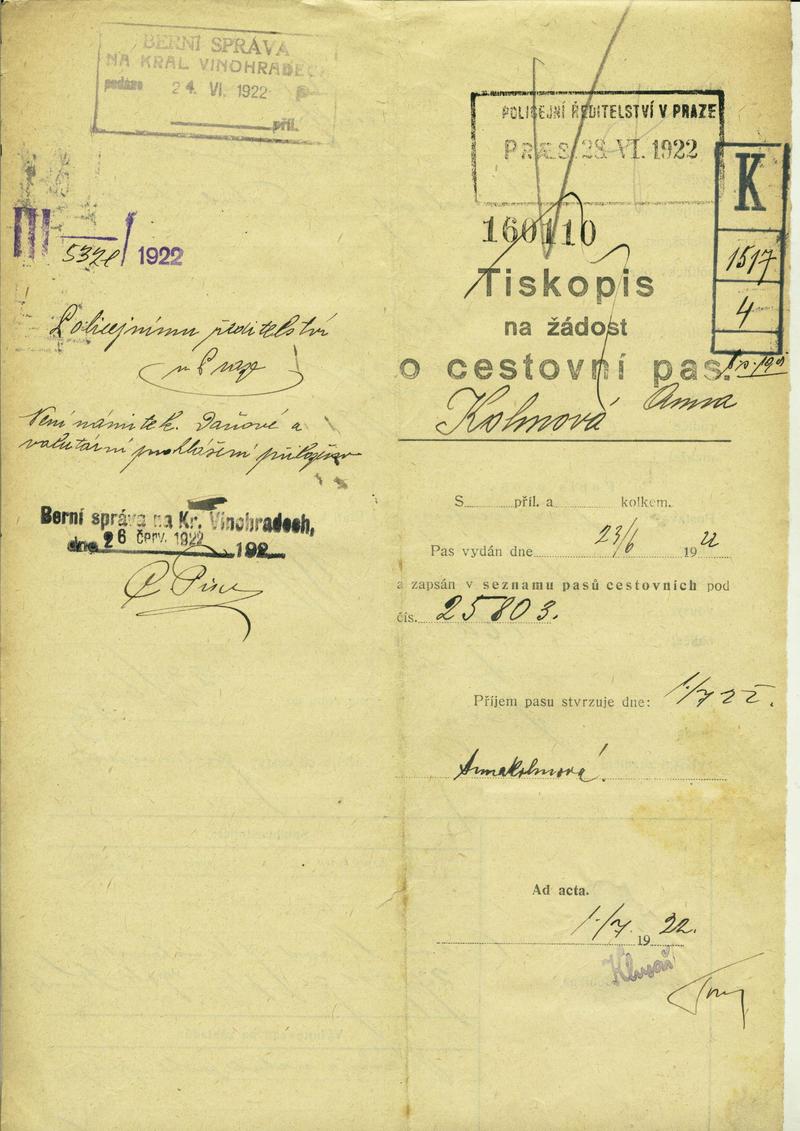 BERNÍ SPRÁVA
NA KRÁL VINOHRADECH
podáno 24. VI. 1922
příl.
III 1922
Policejnímu ředitelství
v Praze
Není námitek. Daňové a
valutární prohlášení
Berní správa na Kr. Vinohradech,
dne 26 červ. 1922 192
POLICEJNÍ ŘEDITELSTVÍ V PRAZE
PRAES. 28. VI. 1922
160110
K
1517
4
Tiskopis
na žádost
o cestovní pas.
Kolmová Anna
S příl. a kolkem.
Pas vydán dne 23/6 1922
a zapsán v seznamu pasů cestovních pod
čís. 25803.
Příjem pasu stvrzuje dne: 1/7 22.
Anna Kolmová.
Ad acta.
1/7. 1922.